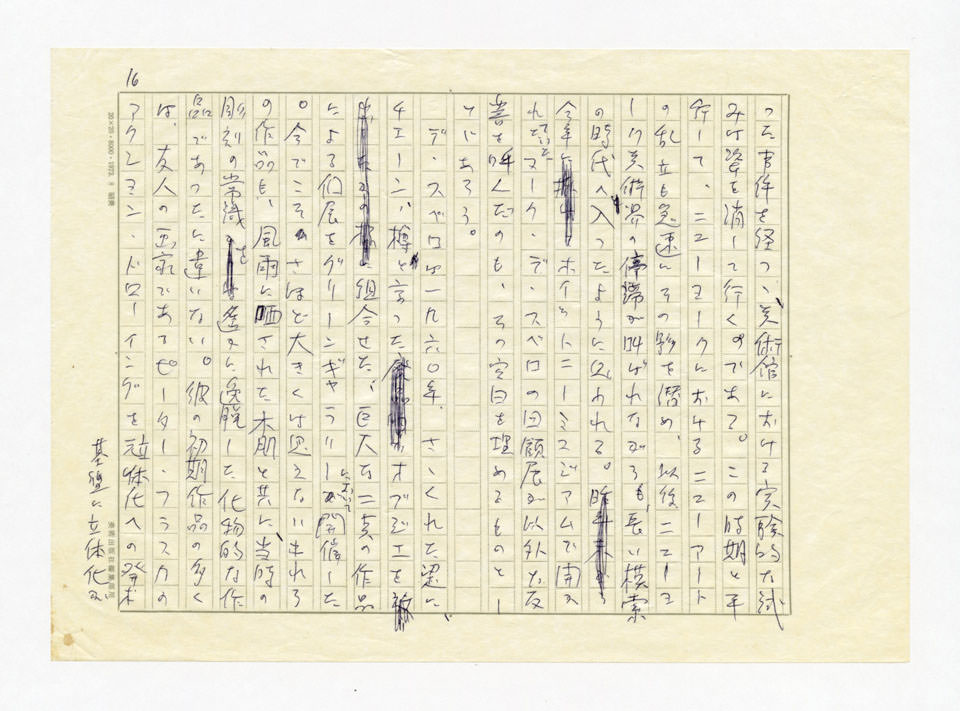 16
った事件を経つゝ美術館における実験的な試
みは姿を消して行くのである。この時期と平
行して、ニューヨークにおけるニューアート
の乱立も急速にその影を潜め、以後ニューヨ
ーク美術界の停滞が叫ばれながらも、長い模索
の時代へ入ったように思われる。
今年にホイットニーミュズジアムで開か
れたマーク・デ・スベロの回顧展が以外な反
響を呼んだのも、その空白を埋めるものとし
てゞあろう。
デ・スベロは一九六〇年、さゝくれた梁に
チエーン、樽と言ったオブジエを
に組合せた、巨大な二真の作品
による個展をグリーンギャラリーによって開催した
。今でこそさほど大きくは思えないそれら
の作品も、風雨に晒された木肌と共に、当時の
彫刻の常識を遙かに逸脱した化物的な作
品であったに違いない。彼の初期作品の多く
は、友人の画家であるピーター・フラスカの
アクション・ドローイングを立体化への発想
基盤に立体化
20×20